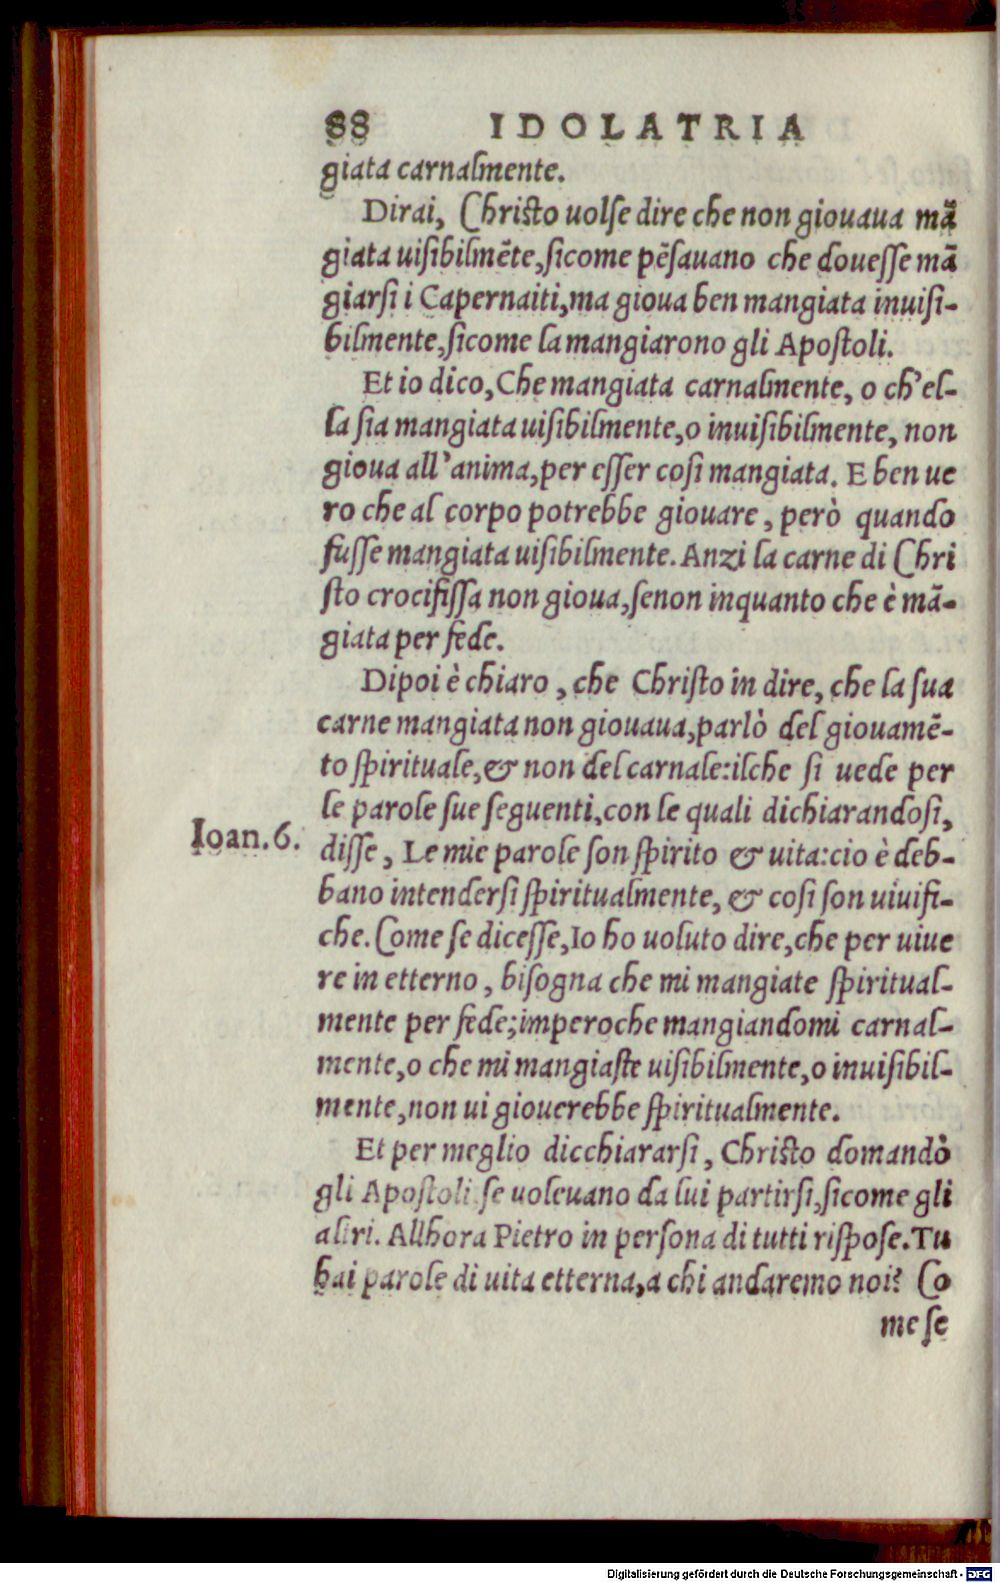 88 IDOLATRIA
giata carnalmente.
Dirai, Christo uolse dire che non giouaua mã
giata uisibilmẽte, sicome pẽsauano che douesse mã
giarsi i Capernaiti, ma gioua ben mangiata inuisi-
bilmente, sicome la mangiarono gli Apostoli.
Et io dico, Che mangiata carnalmente, o ch'el-
la sia mangiata uisibilmente, o inuisibilmente, non
gioua all'anima, per esser cosi mangiata. E ben ue
ro che al corpo potrebbe giouare, però quando
fusse mangiata uisibilmente. Anzi la carne di Chri
sto crocifissa non gioua, senon inquanto che è mã-
giata per fede.
Dipoi è chiaro, che Christo in dire, che la sua
carne mangiata non giouaua, parlò del giouamẽ-
to spirituale, & non del carnale: ilche si uede per
le parole sue seguenti, con le quali dichiarandosi,
Ioan. 6.
disse, Le mie parole son spirito & uita: cio è deb-
bano intendersi spiritualmente, & cosi son uiuifi-
che. Come se dicesse, Io ho uoluto dire, che per uiue
re in etterno, bisogna che mi mangiate spiritual-
mente per fede; imperoche mangiandomi carnal-
mente, o che mi mangiaste uisibilmente, o inuisibil-
mente, non ui giouerebbe spiritualmente.
Et per meglio dicchiararsi, Christo domandò
gli Apostoli se uoleuano da lui partirsi, sicome gli
altri. Allhora Pietro in persona di tutti rispose. Tu
hai parole di uita etterna, a chi andaremo noi? Co
me se
Digitalisierung gefördert durch die Deutsche Forschungsgemeinschaft - DFG